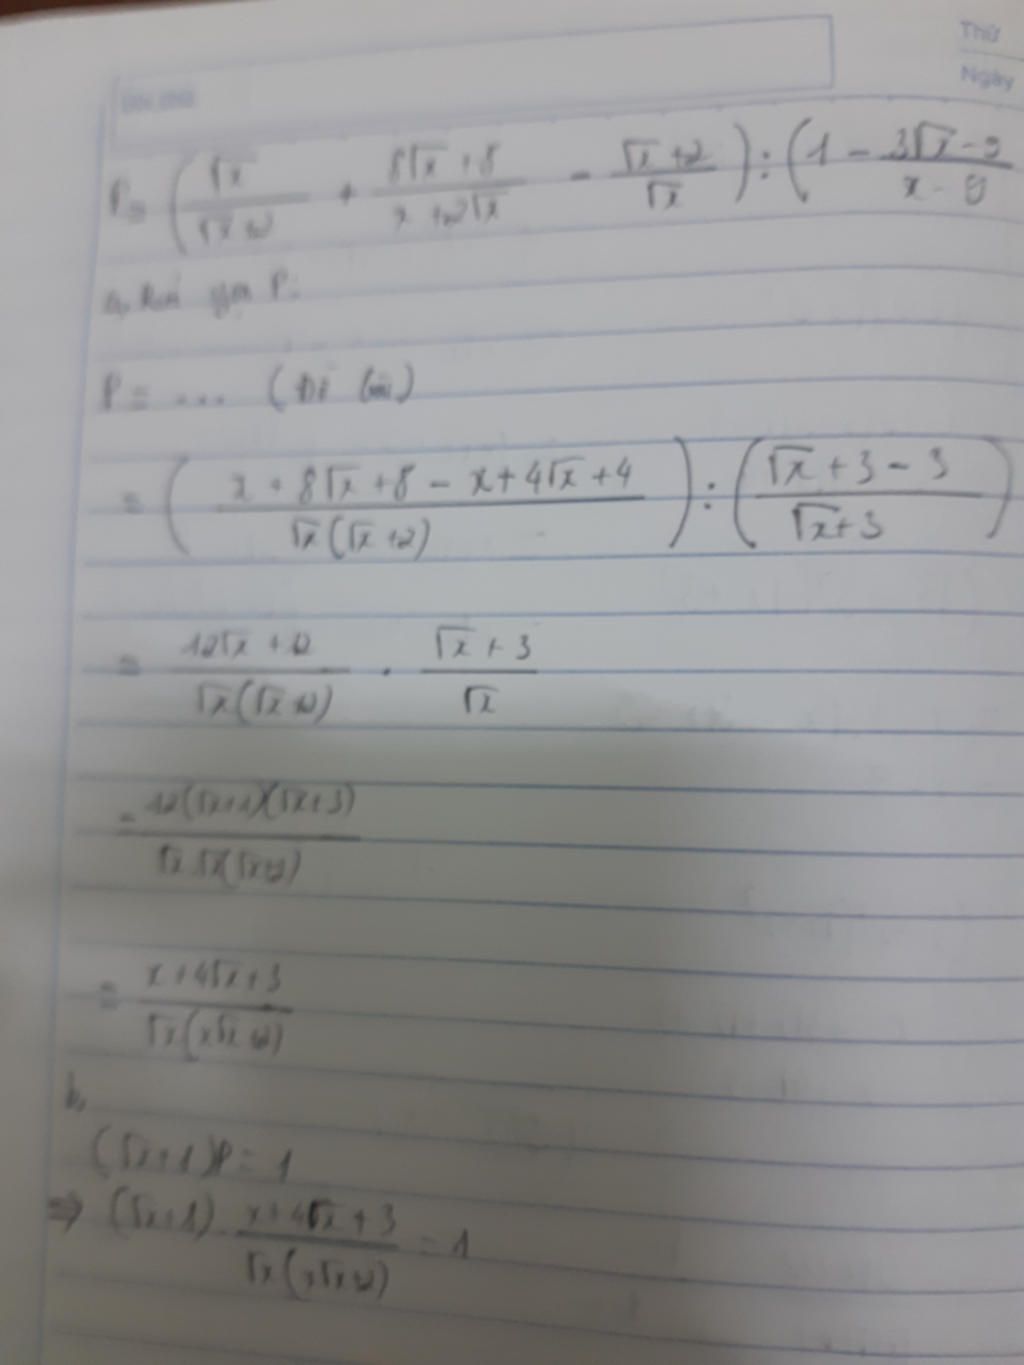 Thứ
Ngày
P = (√x/(√x+2) + (8√x+8)/(x+2√x) - (√x+2)/√x) : (1 - (3√x-9)/(x-9)
a, Rút gọn P:
P = ... (Đề bài)
= ((x + 8√x + 8 - x + 4√x + 4)/(√x(√x+2))) : ((√x + 3 - 3)/(√x+3))
= (12√x + 12)/(√x(√x+2)) . (√x + 3)/√x
= 12(√x+1)(√x+3)/(√x.√x(√x+2))
= (x+4√x+3)/(√x(x√x+2))
b,
(√x+1)P = 1
⇒ (√x+1) . (x+4√x+3)/(√x(x√x+2)) = 1